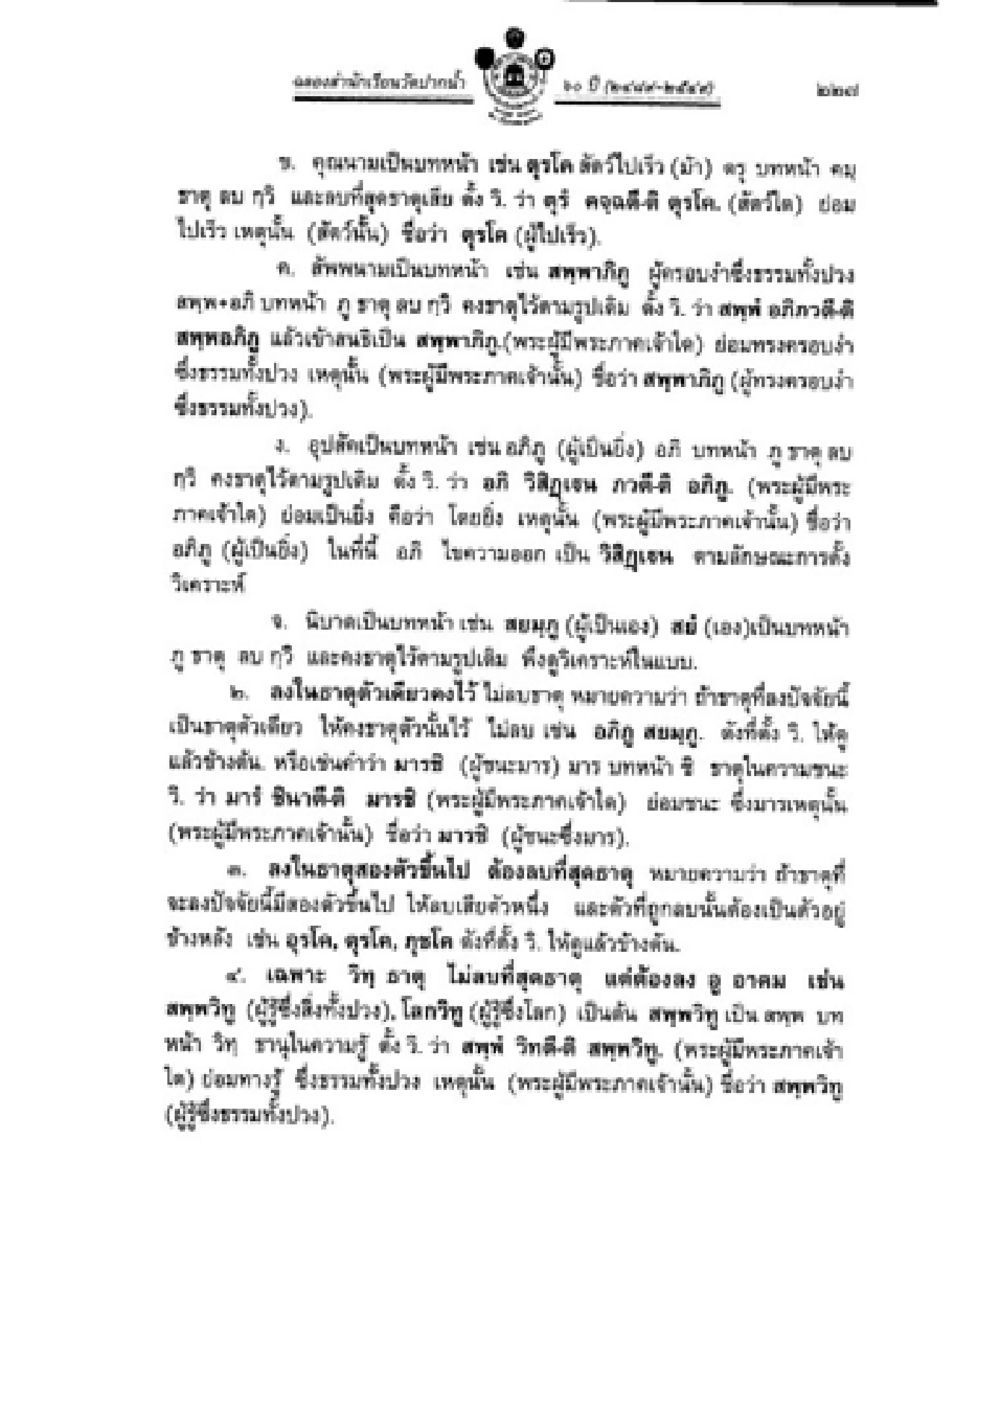 ฉลองสำนักเรียนวัดปากน้ำ ๖๐ ปี (๒๔๘๙-๒๕๔๙)
ข. คุณนามเป็นบทหน้า เช่น ตุรโค สัตว์ไปเร็ว (ม้า) ตรุ บทหน้า คมฺ
ธาตุ ลบ กฺวิ และลบที่สุดธาตุเสีย ตั้ง วิ. ว่า ตุรํ คจฺฉตี-ติ ตุรโค. (สัตว์ใด) ย่อม
ไปเร็ว เหตุนั้น (สัตว์นั้น) ชื่อว่า ตุรโค (ผู้ไปเร็ว).
ค. สัพพนามเป็นบทหน้า เช่น สพฺพาภิภู ผู้ครอบงำซึ่งธรรมทั้งปวง
สพฺพ+อภิ บทหน้า ภู ธาตุ ลบ กฺวิ คงธาตุไว้ตามรูปเดิม ตั้ง วิ. ว่า สพฺพํ อภิภวตี-ติ
สพฺพอภิภู แล้วเข้าสนธิเป็น สพฺพาภิภู.(พระผู้มีพระภาคเจ้าใด) ย่อมทรงครอบงำ
ซึ่งธรรมทั้งปวง เหตุนั้น (พระผู้มีพระภาคเจ้านั้น) ชื่อว่า สพฺพาภิภู (ผู้ทรงครอบงำ
ซึ่งธรรมทั้งปวง).
ง. อุปสัคเป็นบทหน้า เช่น อภิภู (ผู้เป็นยิ่ง) อภิ บทหน้า ภู ธาตุ ลบ
กฺวิ คงธาตุไว้ตามรูปเดิม ตั้ง วิ. ว่า อภิ วิสิฏฺเฐน ภวตี-ติ อภิภู. (พระผู้มีพระ
ภาคเจ้าใด) ย่อมเป็นยิ่ง คือว่า โดยยิ่ง เหตุนั้น (พระผู้มีพระภาคเจ้านั้น) ชื่อว่า
อภิภู (ผู้เป็นยิ่ง) ในที่นี้ อภิ ไขความออก เป็น วิสิฏฺเฐน ตามลักษณะการตั้ง
วิเคราะห์
จ. นิบาตเป็นบทหน้า เช่น สยมฺภู (ผู้เป็นเอง) สยํ (เอง)เป็นบทหน้า
ภู ธาตุ ลบ กฺวิ และคงธาตุไว้ตามรูปเดิม พึงดูวิเคราะห์ในแบบ.
๒. ลงในธาตุตัวเดียวคงไว้ ไม่ลบธาตุ หมายความว่า ถ้าธาตุที่ลงปัจจัยนี้
เป็นธาตุตัวเดียว ให้คงธาตุตัวนั้นไว้ ไม่ลบ เช่น อภิภู สยมฺภู. ดังที่ตั้ง วิ. ให้ดู
แล้วข้างต้น. หรือเช่นคำว่า มารชิ (ผู้ชนะมาร) มาร บทหน้า ชิ ธาตุในความชนะ
วิ. ว่า มารํ ชินาตี-ติ มารชิ (พระผู้มีพระภาคเจ้าใด) ย่อมชนะ ซึ่งมารเหตุนั้น
(พระผู้มีพระภาคเจ้านั้น) ชื่อว่า มารชิ (ผู้ชนะซึ่งมาร).
๓. ลงในธาตุสองตัวขึ้นไป ต้องลบที่สุดธาตุ หมายความว่า ถ้าธาตุที่
จะลงปัจจัยนี้มีสองตัวขึ้นไป ให้ลบเสียตัวหนึ่ง และตัวที่ถูกลบนั้นต้องเป็นตัวอยู่
ข้างหลัง เช่น อุรโค, ตุรโค, ภุชโค ดังที่ตั้ง วิ. ให้ดูแล้วข้างต้น.
๔. เฉพาะ วิทฺ ธาตุ ไม่ลบที่สุดธาตุ แต่ต้องลง อู อาคม เช่น
สพฺพวิทู (ผู้รู้ซึ่งสิ่งทั้งปวง), โลกวิทู (ผู้รู้ซึ่งโลก) เป็นต้น สพฺพวิทู เป็น สพฺพ บท
หน้า วิทฺ ธานุในความรู้ ตั้ง วิ. ว่า สพฺพํ วิทตี-ติ สพฺพวิทู. (พระผู้มีพระภาคเจ้า
ใด) ย่อมทางรู้ ซึ่งธรรมทั้งปวง เหตุนั้น (พระผู้มีพระภาคเจ้านั้น) ชื่อว่า สพฺพวิทู
(ผู้รู้ซึ่งธรรมทั้งปวง).